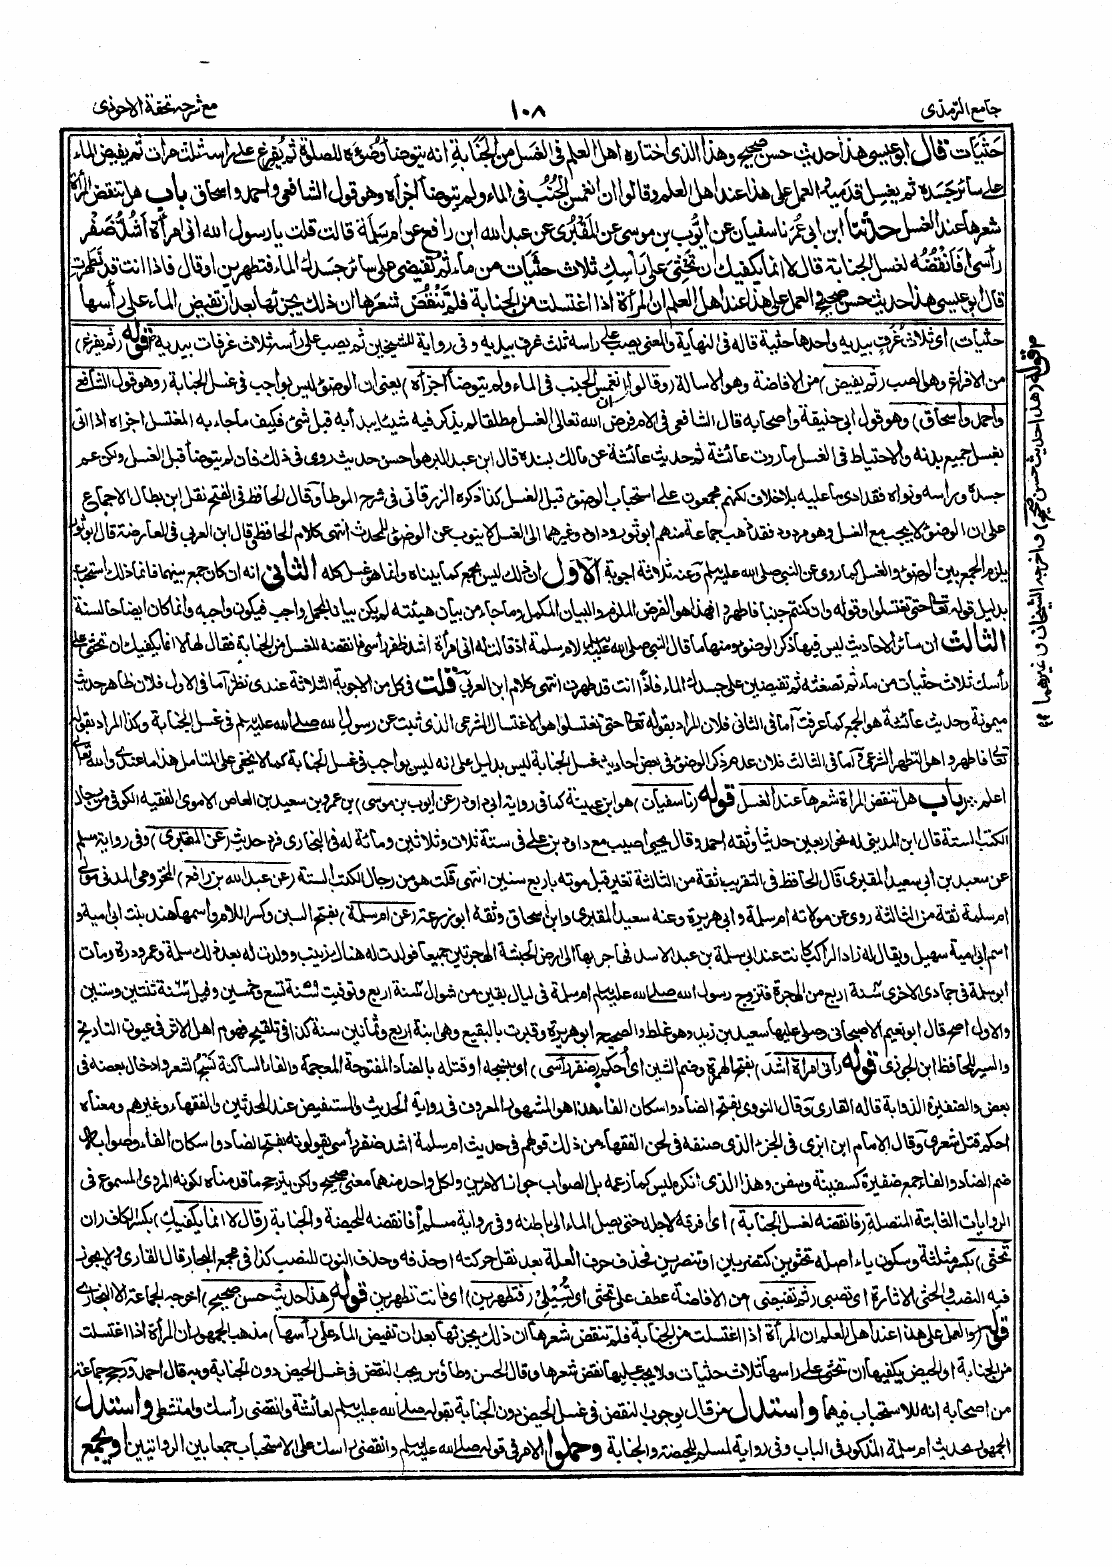 جامع الترمذی
١٠٨
مع شرحه تحفة الاحوذی
حثيات قال ابو عيسى هذا حديث حسن صحيح وهذا الذى اختاره اهل العلم فى الغسل من الجنابة انه يتوضأ وضوءه للصلوة ثم يفرغ على راسه ثلث مرات ثم يفيض الماء
على سائر جسده ثم يغسل قدميه والعمل على هذا عند اهل العلم وقالوا ان انغمس الجنب فى الماء ولم يتوضأ اجزأه وهو قول الشافعى واحمد واسحاق باب هل تنقض المرأة
شعرها عند الغسل حدثنا ابن ابى عمر نا سفيان عن ايوب بن موسى عن المقبرى عن عبد الله ابن رافع عن ام سلمة قالت قلت يا رسول الله انى امرأة اشد ضفر
رأسى أفانقضه لغسل الجنابة قال لا انما يكفيك ان تحثى على رأسك ثلاث حثيات من ماء ثم تفيضى على سائر جسدك الماء فتطهرين او قال فاذا انت قد تطهرت
قال ابو عيسى هذا حديث حسن صحيح والعمل على هذا عند اهل العلم ان المرأة اذا اغتسلت من الجنابة فلم تنقض شعرها ان ذلك يجزئها بعد ان تفيض الماء على رأسها
حثيات) اى ثلاث غرف بيديه واحدها حثية قاله فى النهاية والمعنى يصب على راسه ثلث غرف بيديه وفى رواية للشيخين ثم يصب على رأسه ثلاث غرفات بيديه قوله (ثم يفرغ)
من الافراغ وهو الصب (ثم يفيض) من الافاضة وهو الاسالة (وقالوا ان انغمس الجنب فى الماء ولم يتوضأ اجزأه) يعنى ان الوضوء ليس بواجب فى غسل الجنابة (وهو قول الشافعى
واحمد واسحاق) وهو قول ابى حنيفة واصحابه قال الشافعى فى الام فرض الله تعالى الغسل مطلقا لم يذكر فيه شيئا يبدأ به قبل شئ فكيف ما جاء به المغتسل اجزاه اذا اتى
بغسل جميع بدنه والاحتياط فى الغسل ما روت عائشة ثم حديث عائشة عن مالك بسنده قال ابن عبد البر هو احسن حديث روى فى ذلك فان لم يتوضأ قبل الغسل ولكن عم
جسده وراسه ونواه فقد ادى ما عليه بلا خلاف لكنهم مجمعون على استحباب الوضوء قبل الغسل كذا ذكره الزرقانى فى شرح الموطأ وقال الحافظ فى الفتح نقل ابن بطال الاجماع
على ان الوضوء لا يجب مع الغسل وهو مردود فقد ذهب جماعة منهم ابو ثور وداود وغيرهما الى ان الغسل لا ينوب عن الوضوء للمحدث انتهى كلام الحافظ قال ابن العربى فى العارضة قال ابو ثور
يلزم الجمع بين الوضوء والغسل كما روى عن النبى صلى الله عليه وسلم وعنه ثلاثة اجوبة الاول ان ذلك ليس بجمع كما بيناه وانما هو غسل كله الثانى انه ان كان جمع بينهما فانما ذلك استحباب
بدليل قوله تعالى حتى تغتسلوا وقوله وان كنتم جنبا فاطهروا فهذا هو الفرض الملزم والبيان المكمل وما جاء من بيان هيئته لم يكن بيانا لمجمل واجب فيكون واجبا وانما كان ايضاحا لسنة
الثالث ان سائر الاحاديث ليس فيها ذكر الوضوء ومنها ما قال النبى صلى الله عليه وسلم لام سلمة اذ قالت له انى امرأة اشد ضفر رأسى أفانقضه للغسل من الجنابة فقال لها لا انما يكفيك ان تحثى على
رأسك ثلاث حثيات من ماء ثم تضغثيه ثم تفيضين على جسدك الماء فاذا انت قد طهرت انتهى كلام ابن العربى قلت فى كل من الاجوبة الثلاثة عندى نظر اما فى الاول فلان ظاهر حديث
ميمونة وحديث عائشة هو الجمع كما عرفت اما فى الثانى فلان المراد بقوله تعالى حتى تغتسلوا هو الاغتسال الشرعى الذى ثبت عن رسول الله صلى الله عليه وسلم فى غسل الجنابة وكذا المراد بقوله
تعالى فاطهروا هو التطهر الشرعى اما فى الثالث فلان عدم ذكر الوضوء فى بعض احاديث غسل الجنابة ليس بدليل على انه ليس بواجب فى غسل الجنابة كما لا يخفى على المتامل هذا ما عندى والله تعالى
اعلم :: باب هل تنقض المرأة شعرها عند الغسل قوله (نا سفيان) هو ابن عيينة كما فى رواية ابى داود (عن ايوب بن موسى) بن عمرو بن سعيد بن العاص الاموى الفقيه الكوفى من رجال
الكتب الستة قال ابن المدينى له نحو اربعين حديثا وثقه احمد وقال يحيى اصيب مع داود بن على فى سنة ثلاث وثلاثين ومائة له فى البخارى فرد حديث (عن المقبرى) وفى رواية مسلم
عن سعيد بن ابى سعيد المقبرى قال الحافظ فى التقريب ثقة من الثالثة تغير قبل موته باربع سنين انتهى قلت هو من رجال الكتب الستة (عن عبد الله بن رافع) المخزومى المدنى مولى
ام سلمة ثقة من الثالثة روى عن مولاته ام سلمة وابى هريرة وعنه سعيد المقبرى وابن اسحاق وثقه ابو زرعة (عن ام سلمة) بفتح السين وكسر اللام واسمها هند بنت ابى امية و
اسم ابى امية سهيل ويقال له زاد الراكب كانت عند ابى سلمة بن عبد الاسد فهاجر بها الى ارض الحبشة الهجرتين جميعا فولدت له هناك زينب وولدت له بعد ذلك سلمة وعمر ودرة ومات
ابو سلمة فى جمادى الاخرى سنة اربع من الهجرة فتزوج رسول الله صلى الله عليه وسلم ام سلمة فى ليال بقين من شوال سنة اربع وتوفيت سنة تسع وخمسين وقيل سنة ثنتين وستين
والاول اصح قال ابو نعيم الاصبهانى وصلى عليها سعيد بن زيد وهو غلط والصحيح ابو هريرة وقبرت بالبقيع وهى ابنة اربع وثمانين سنة كذا فى تلقيح فهوم اهل الاثر فى عيون التاريخ
والسير للحافظ ابن الجوزى قوله (انى امرأة اشد) بفتح الهمزة وضم الشين اى أحكم (ضفر رأسى) اى نسجه او فتله بالضاد المفتوحة المعجمة والفاء الساكنة نسج الشعر وادخال بعضه فى
بعض والضفيرة الذوابة قاله القارى وقال النووى بفتح الضاد واسكان الفاء هذا هو المشهور المعروف فى رواية الحديث والمستفيض عند المحدثين والفقهاء وغيرهم ومعناه
احكم فتل شعرى وقال الامام ابن ابزى فى الجزء الذى صنفه فى لحن الفقهاء من ذلك قولهم فى حديث ام سلمة اشد ضفر رأسى يقولونه بفتح الضاد واسكان الفاء وصوابه
ضم الضاد والفاء جمع ضفيرة كسفينة وسفن وهذا الذى انكره ليس كما زعمه بل الصواب جواز الامرين ولكل واحد منهما معنى صحيح ولكن يترجح ما قدمناه لكونه المروى المسموع فى
الروايات الثابتة المتصلة (أفانقضه لغسل الجنابة) اى افرقه لاجله حتى يصل الماء الى باطنه وفى رواية مسلم أفانقضه للحيضة والجنابة (قال لا انما يكفيك) بكسر الكاف (ان
تحثى) بكسر مثلثة وسكون ياء اصله تحثوين كتضربين او تنصرين فحذف حرف العلة بعد نقل حركته او حذفه وحذف النون للنصب كذا فى مجمع البحار قال القارى ولا يجوز
فيه النصب والحثى الاثارة اى تصبى (ثم تفيضى) من الافاضة عطف على تحثى اى تسيلى (فتطهرين) اى فانت تطهرين قوله (هذا حديث حسن صحيح) اخرجه الجماعة الا البخارى
قوله (والعمل على هذا عند اهل العلم ان المرأة اذا اغتسلت من الجنابة فلم تنقض شعرها ان ذلك يجزئها بعد ان تفيض الماء على رأسها) مذهب الجمهور ان المرأة اذا اغتسلت
من الجنابة او الحيض يكفيها ان تحثى على راسها ثلاث حثيات ولا يجب عليها نقض شعرها وقال الحسن وطاؤس يجب النقض فى غسل الحيض دون الجنابة وبه قال احمد ورجح جماعة
من اصحابه انه للاستحباب فيهما واستدل من قال بوجوب النقض فى غسل الحيض دون الجنابة بقوله صلى الله عليه وسلم لعائشة وانقضى رأسك وامتشطى واستدل
الجمهور بحديث ام سلمة المذكور فى الباب وفى رواية لمسلم للحيضة والجنابة وحملوا الامر فى قوله صلى الله عليه وسلم وانقضى راسك على الاستحباب جمعا بين الروايتين او يجمع
قوله (هذا حديث حسن صحيح) واخرجه الشيخان وغيرهما ١٢